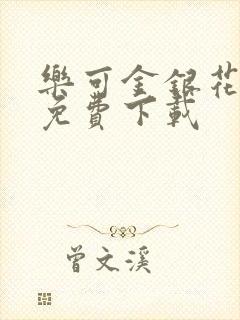 樂可金銀花
免費下載
曾文溪